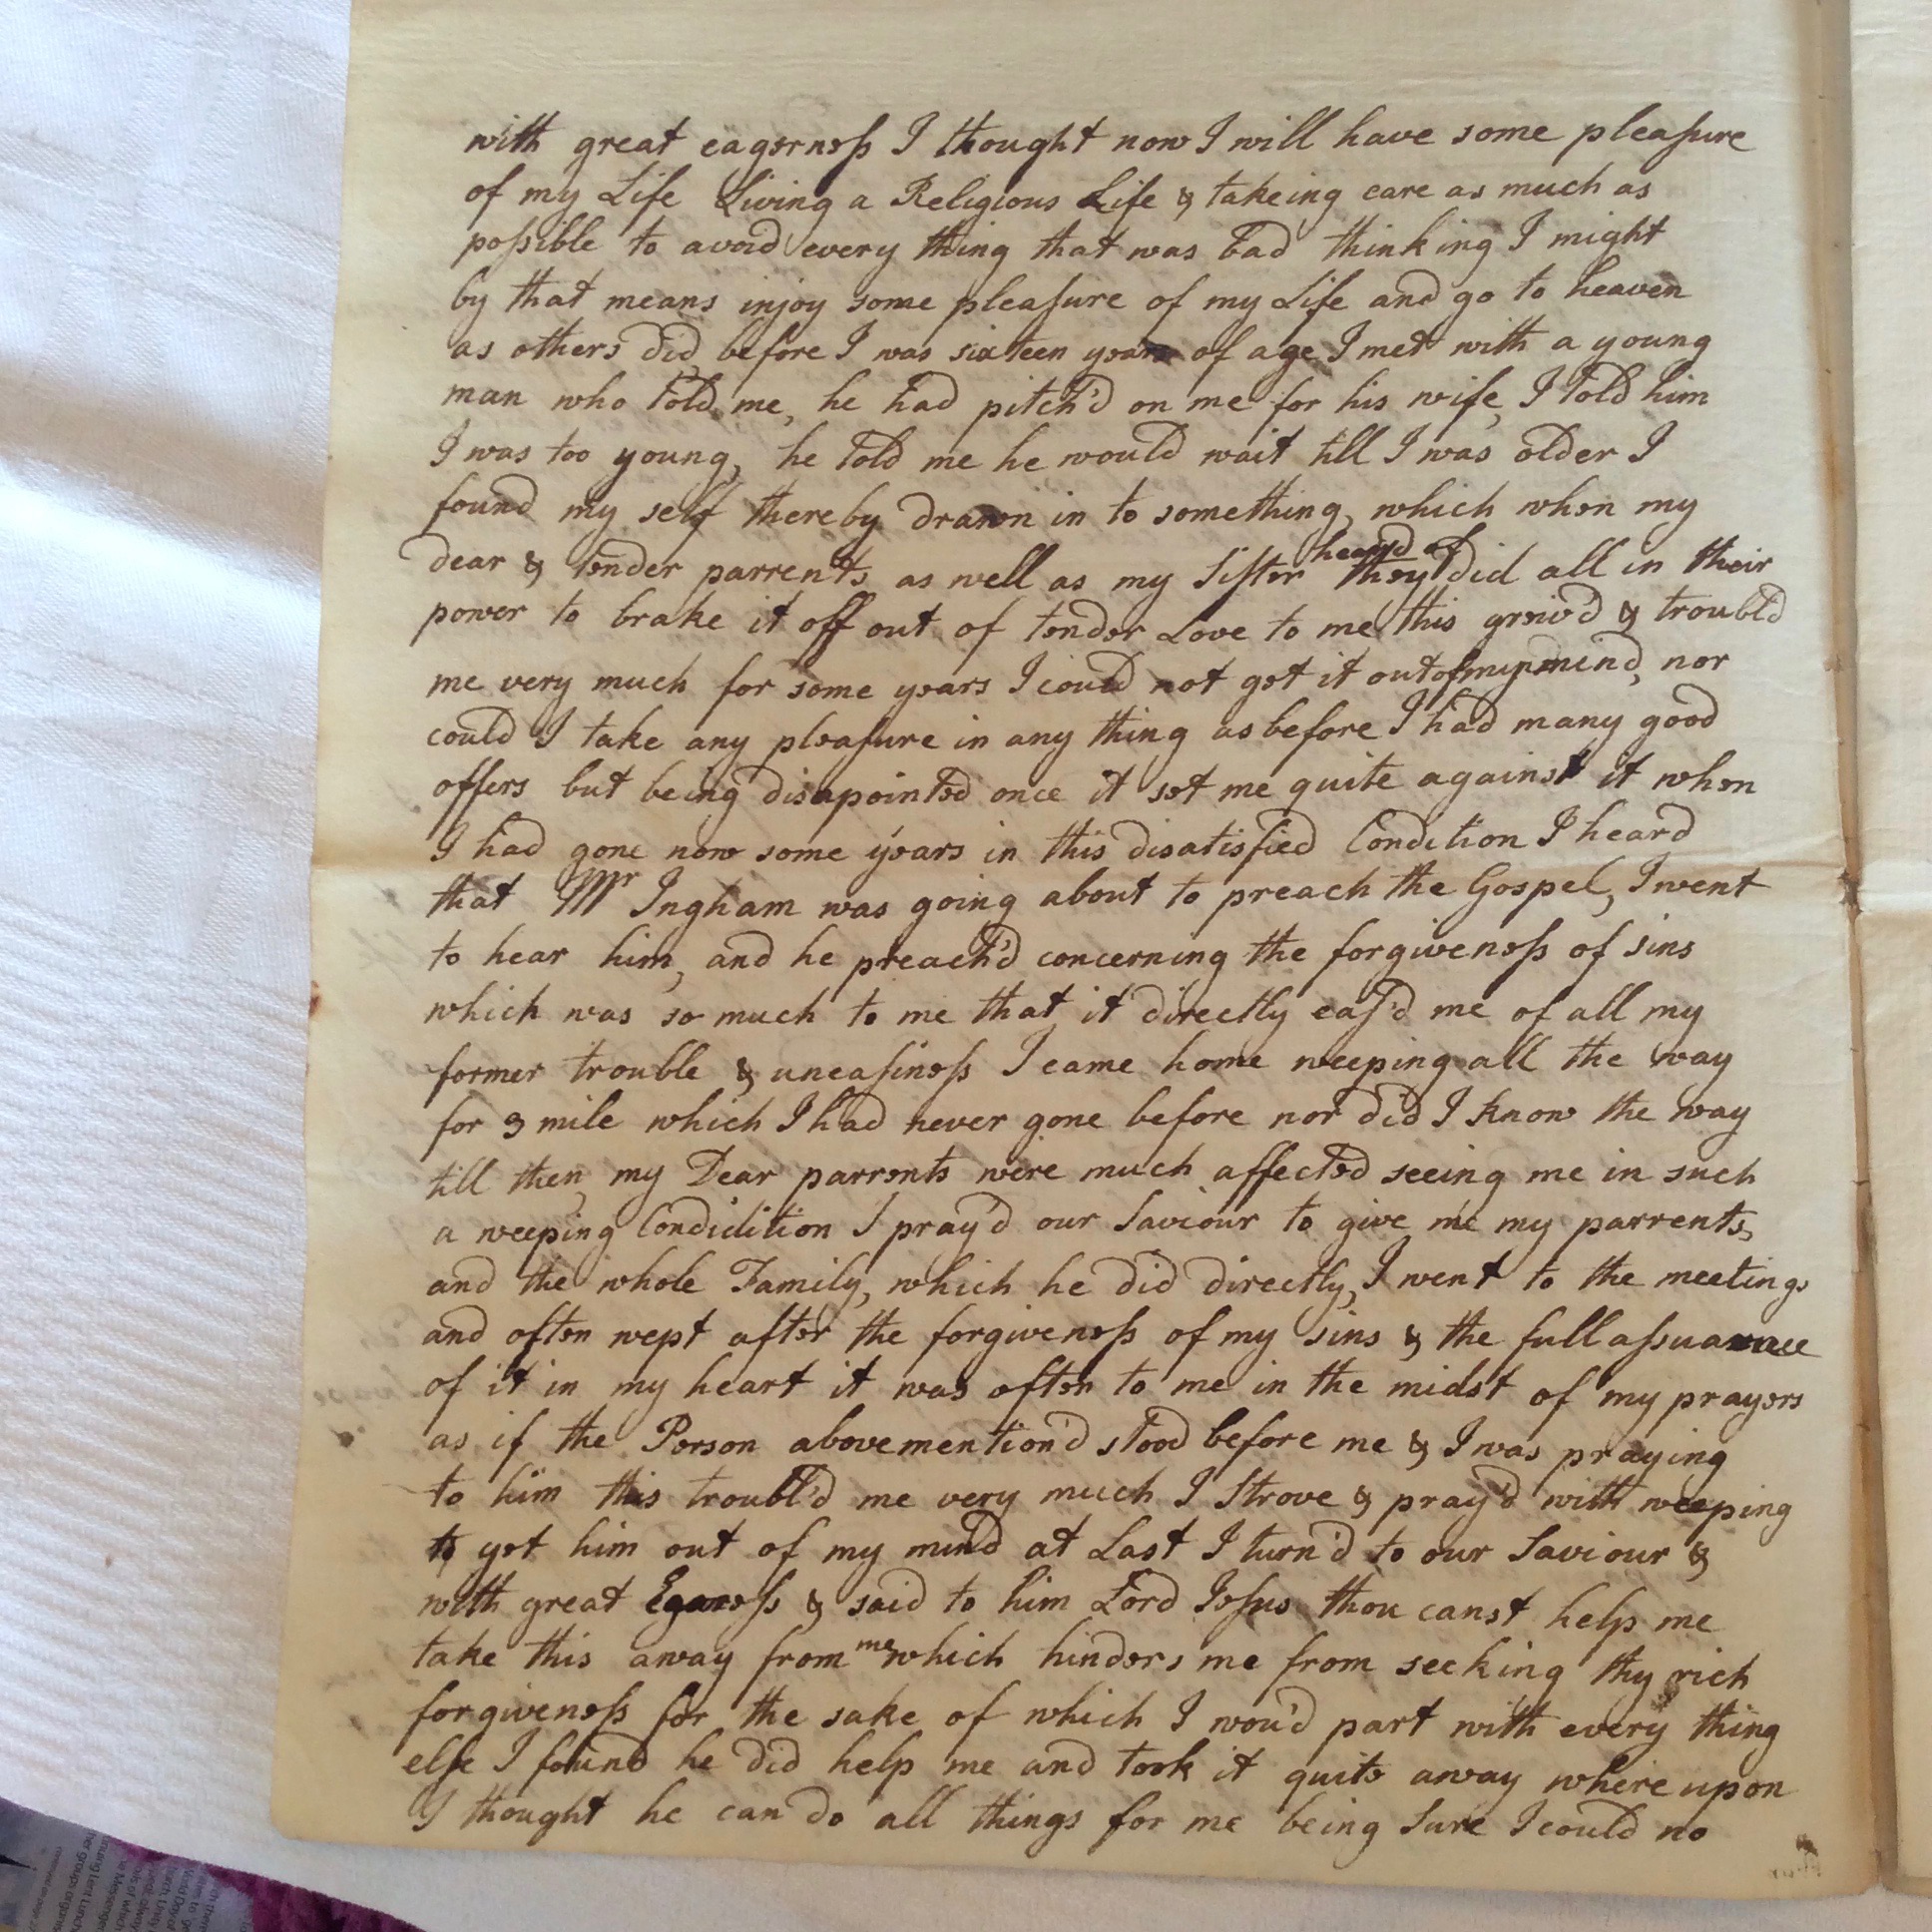 with great eagerneſs I thought now I will have some pleaſure
of my Life Living a Religious Life & takeing care as much as
poſsible to avoid every thing that was bad thinking I might
by that means injoy some pleaſure of my Life and go to heaven
as others did, before I was sixteen years of age I met with a young
man who told me, he had pitch'd on me for his wife, I told him
I was too young, he told me he would wait till I was older I
found my self thereby drawn in to something, which when my
dear & tender parrents, as well as my Siſter heard of they did all in their
power to brake it off out of tender Love to me this greiv'd & troubl'd
me very much for some years I could not get it out of my mind, nor
could I take any pleaſure in any thing as before I had many good
offers but being disapointed once it set me quite against it when
I had gone now some years in this disatisfied Condition I heard
that Mr Ingham was going about to preach the Gospel, I went
to hear him, and he preach'd concerning the forgiveneſs of sins
which was so much to me that it directly eaſ'd me of all my
former trouble & uneaſineſs I came home weeping all the way
for 3 mile which I had never gone before nor did I know the way
till then, my Dear parrents were much affected seeing me in such
a weeping Condidition I pray'd our Saviour to give me my parrents,
and the whole Family, which he did directly, I went to the meetings
and often wept after the forgiveneſs of my sins & the full aſsuarance
of it in my heart it was often to me in the midst of my prayers
as if the Person abovemention'd stood before me & I was praying
to him this troubl'd me very much I Strove & pray'd with weeping
to get him out of my mind at Last I turn'd to our Saviour &
with great Egarneſs & said to him Lord Jeſus thou canst help me
take this away from me which hinders me from seeking thy rich
forgiveneſs for the sake of which I wou'd part with every thing
elſe I found he did help me and took it quite away where upon
I thought he can do all things for me being Sure I could no